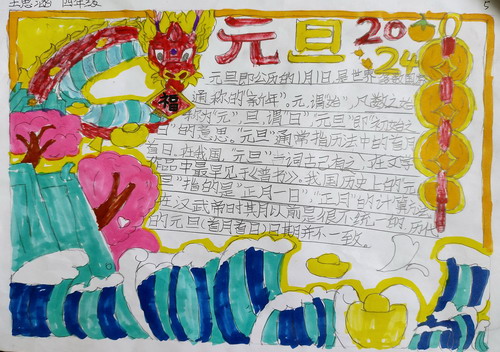 王思涵 四年级
5
元旦
20
24
福
元旦即公历的1月1日是世界多数国家
通称的"新年"。元,谓"始",凡数之始
称为"元",旦,谓"日""元旦"即"初始之
日"的意思。"元旦"通常指历法中的首月
首日。在我国,"元旦"一词古已有之,在文学
作品中最早见于《晋书》。我国历史上的元
旦"指的是"正月一日","正月"的计算方法
在汉武帝时其月以前是很不统一的历代
的元旦(首月首日)日期并不一致。